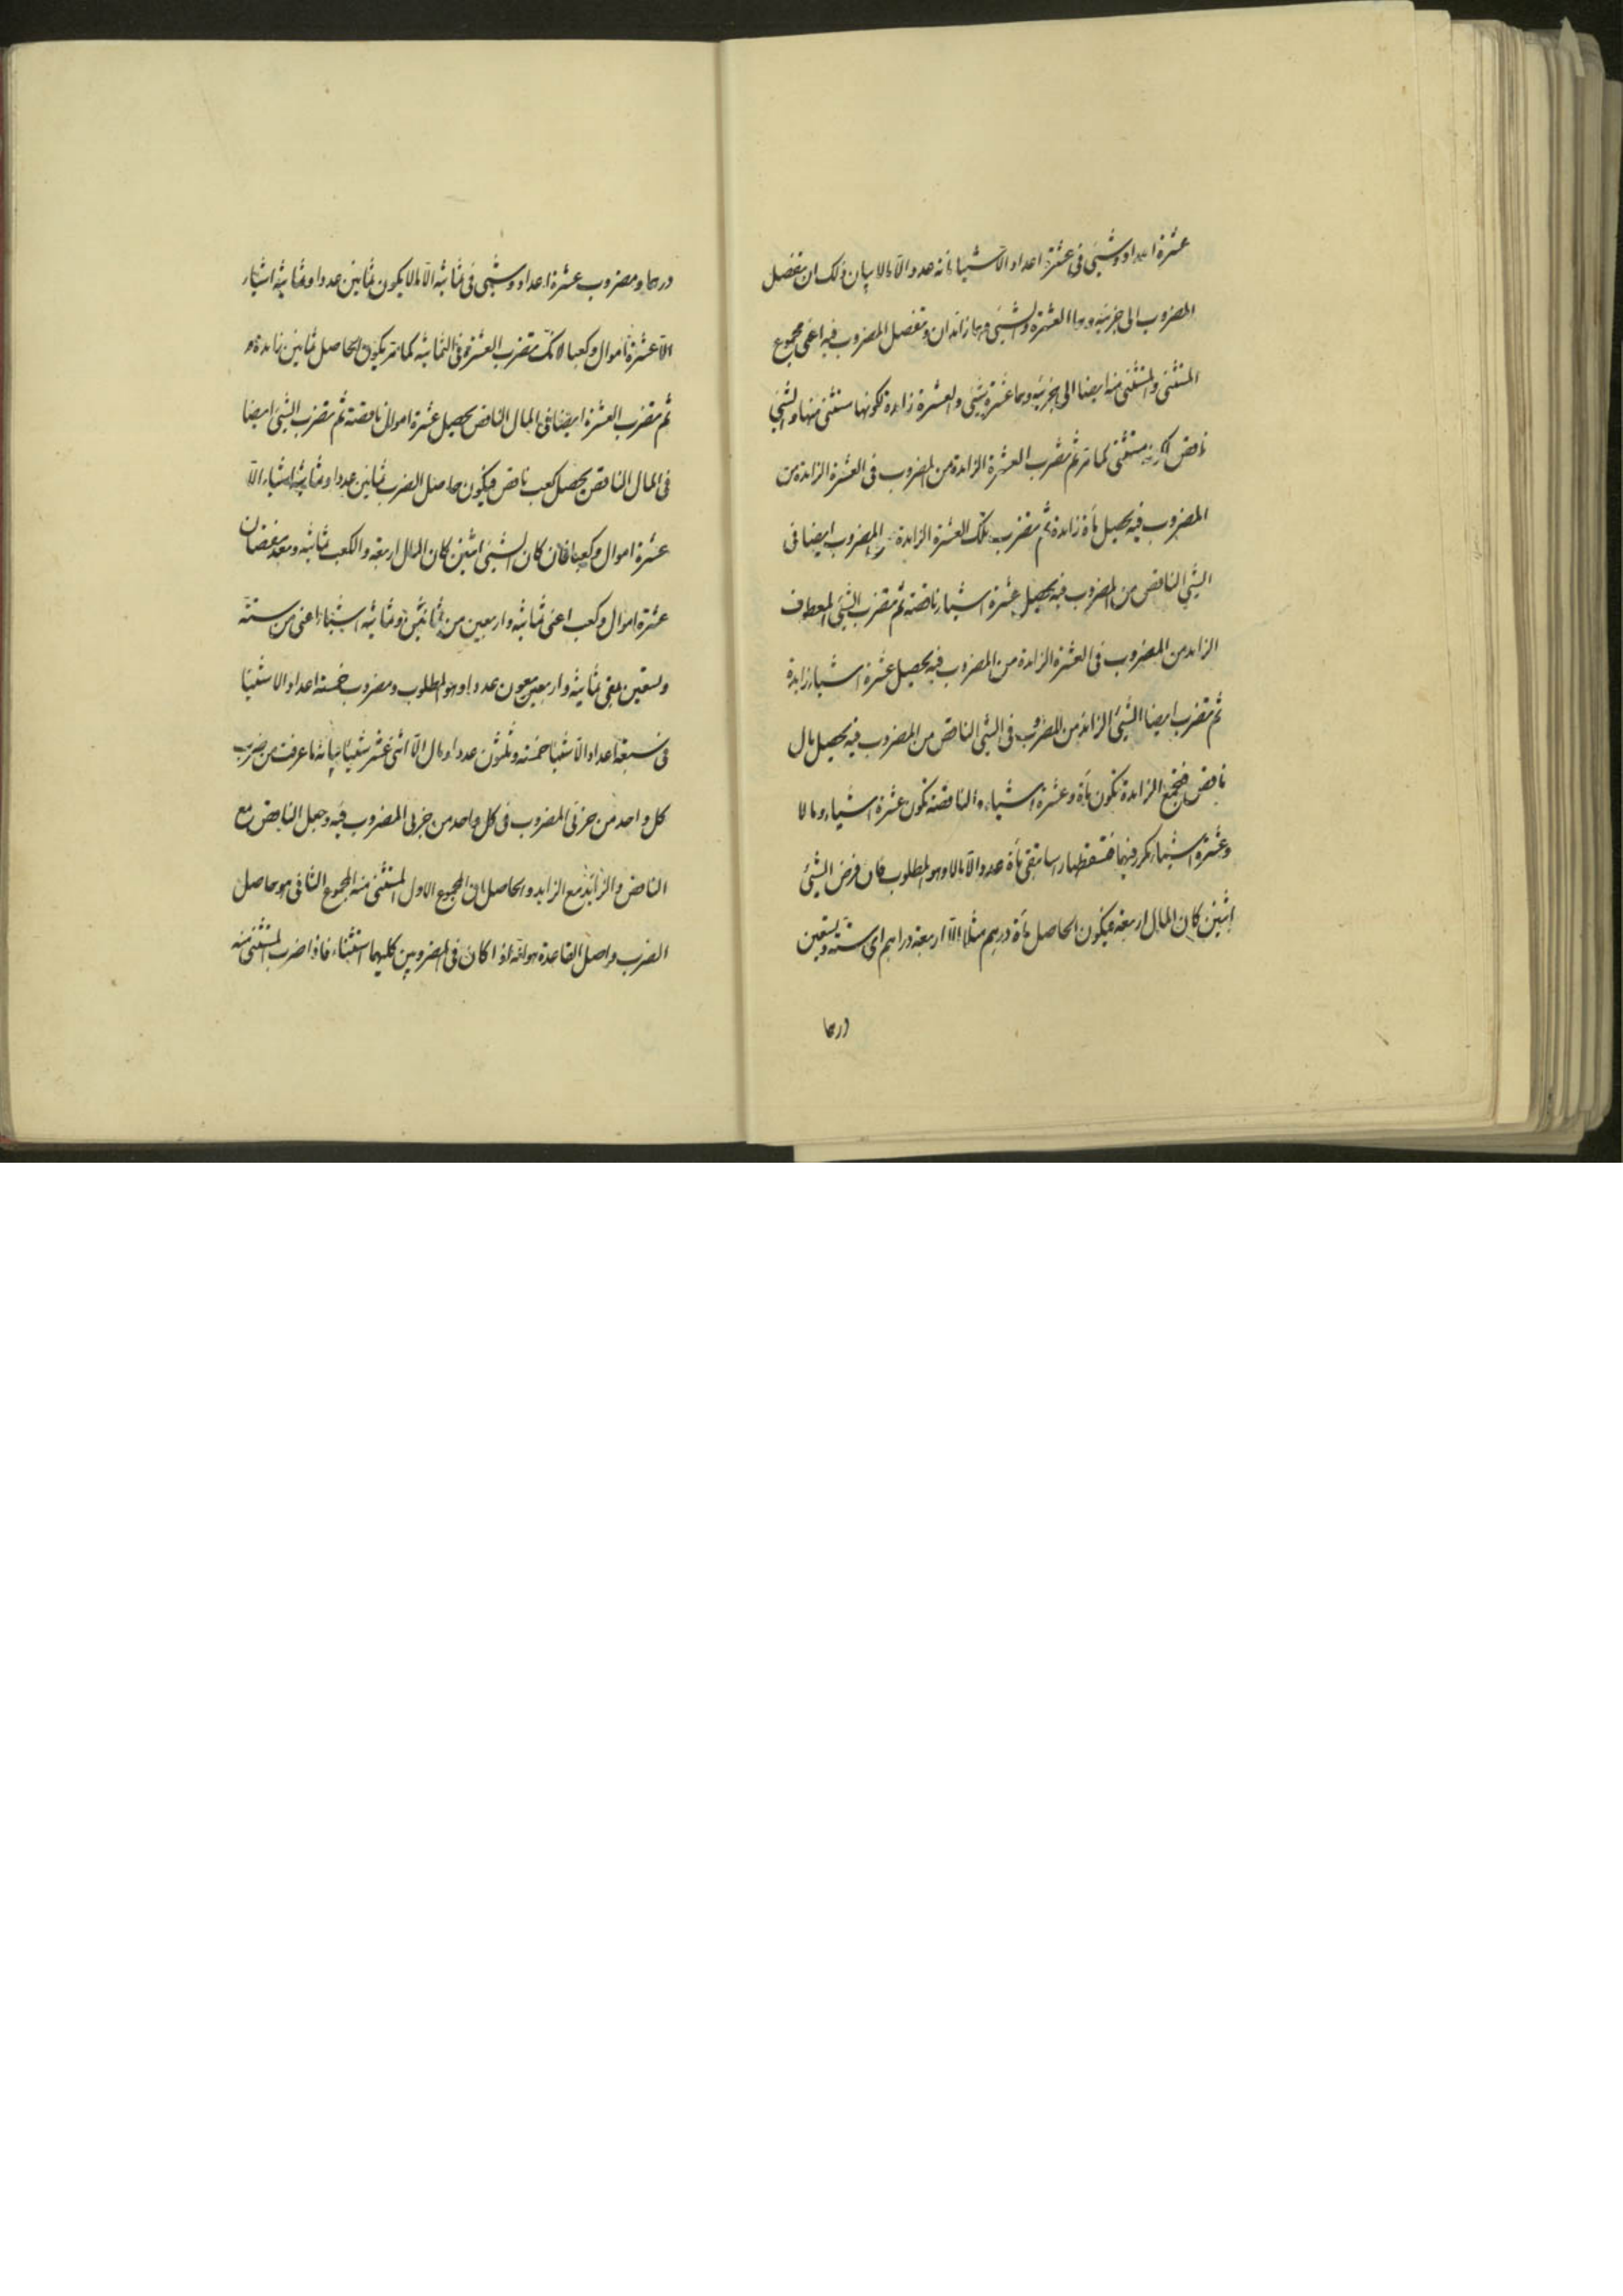 عشرة اعداد وشيئ في عشرة اعداد الا شيئا مائة عدد الا مالا بيان ذلك ان تفصل
المضروب الى جزئيه وهما العشرة والشيئ وهما زائدان وتفصل المضروب فيه اعنى مجموع
المستثنى والمستثنى منه ايضا الى جزئيه وهما عشرة وشيئ والعشرة زائدة لكونها مستثنى منها والشيئ
ناقص لكونه مستثنى كما مر ثم تضرب العشرة الزائدة من المضروب في العشرة الزائدة من
المضروب فيه يحصل مأة زائدة ثم تضرب تلك العشرة الزائدة من المضروب ايضا في
الشيئ الناقص من المضروب فيه يحصل عشرة اشياء ناقصة ثم تضرب الشيئ المعطوف
الزايد من المضروب في العشرة الزايدة من المضروب فيه يحصل عشرة اشياء زايدة
ثم تضرب ايضا الشيئ الزائد من المضروب في الشيئ الناقص من المضروب فيه يحصل مال
ناقص فتجمع الزايدة تكون مأة وعشرة اشياء والناقصة تكون عشرة اشياء ومالا
وعشرة اشياء مكرر فيهما فتسقطها راسا تبقى مأة عدد الا مالا وهو المطلوب فان فرض الشيئ
اثنين كان المال اربعة فيكون الحاصل مأة درهم مثلا الا اربعة دراهم اى ستة وتسعين
درهما
درهما ومضروب عشرة اعداد وشيئ في ثمانية الا مالا يكون ثمانين عددا وثمانية اشياء
الا عشرة اموال وكعبا لانك تضرب العشرة في الثمانية كما مر يكون الحاصل ثمانين زايدة
ثم تضرب العشرة ايضا في المال الناقص يحصل عشرة اموال ناقصة ثم تضرب الشيئ ايضا
في المال الناقص يحصل كعب ناقص فيكون حاصل الضرب ثمانين عددا وثمانية اشياء الا
عشرة اموال وكعبا فان كان الشيئ اثنين كان المال اربعة والكعب ثمانية وبعد نقصان
عشرة اموال وكعب اعنى ثمانية واربعين من ثمانين وثمانية اشياء اعنى من ستة
وتسعين بقى ثمانية واربعون عددا وهو المطلوب ومضروب خمسة اعداد الا شيئا
في سبعة اعداد الا شيئا خمسة وثلثون عددا ومال الا اثنى عشر شيئا بيانه ما عرفت من ضرب
كل واحد من جزئى المضروب في كل واحد من جزئى المضروب فيه وجعل الناقص مع
الناقص والزائد مع الزايد والحاصل ان المجموع الاول المستثنى منه المجموع الثانى هو حاصل
الضرب واصل القاعدة هو انه اذا كان في المضروبين كليهما استثناء فاذا ضرب المستثنى منه